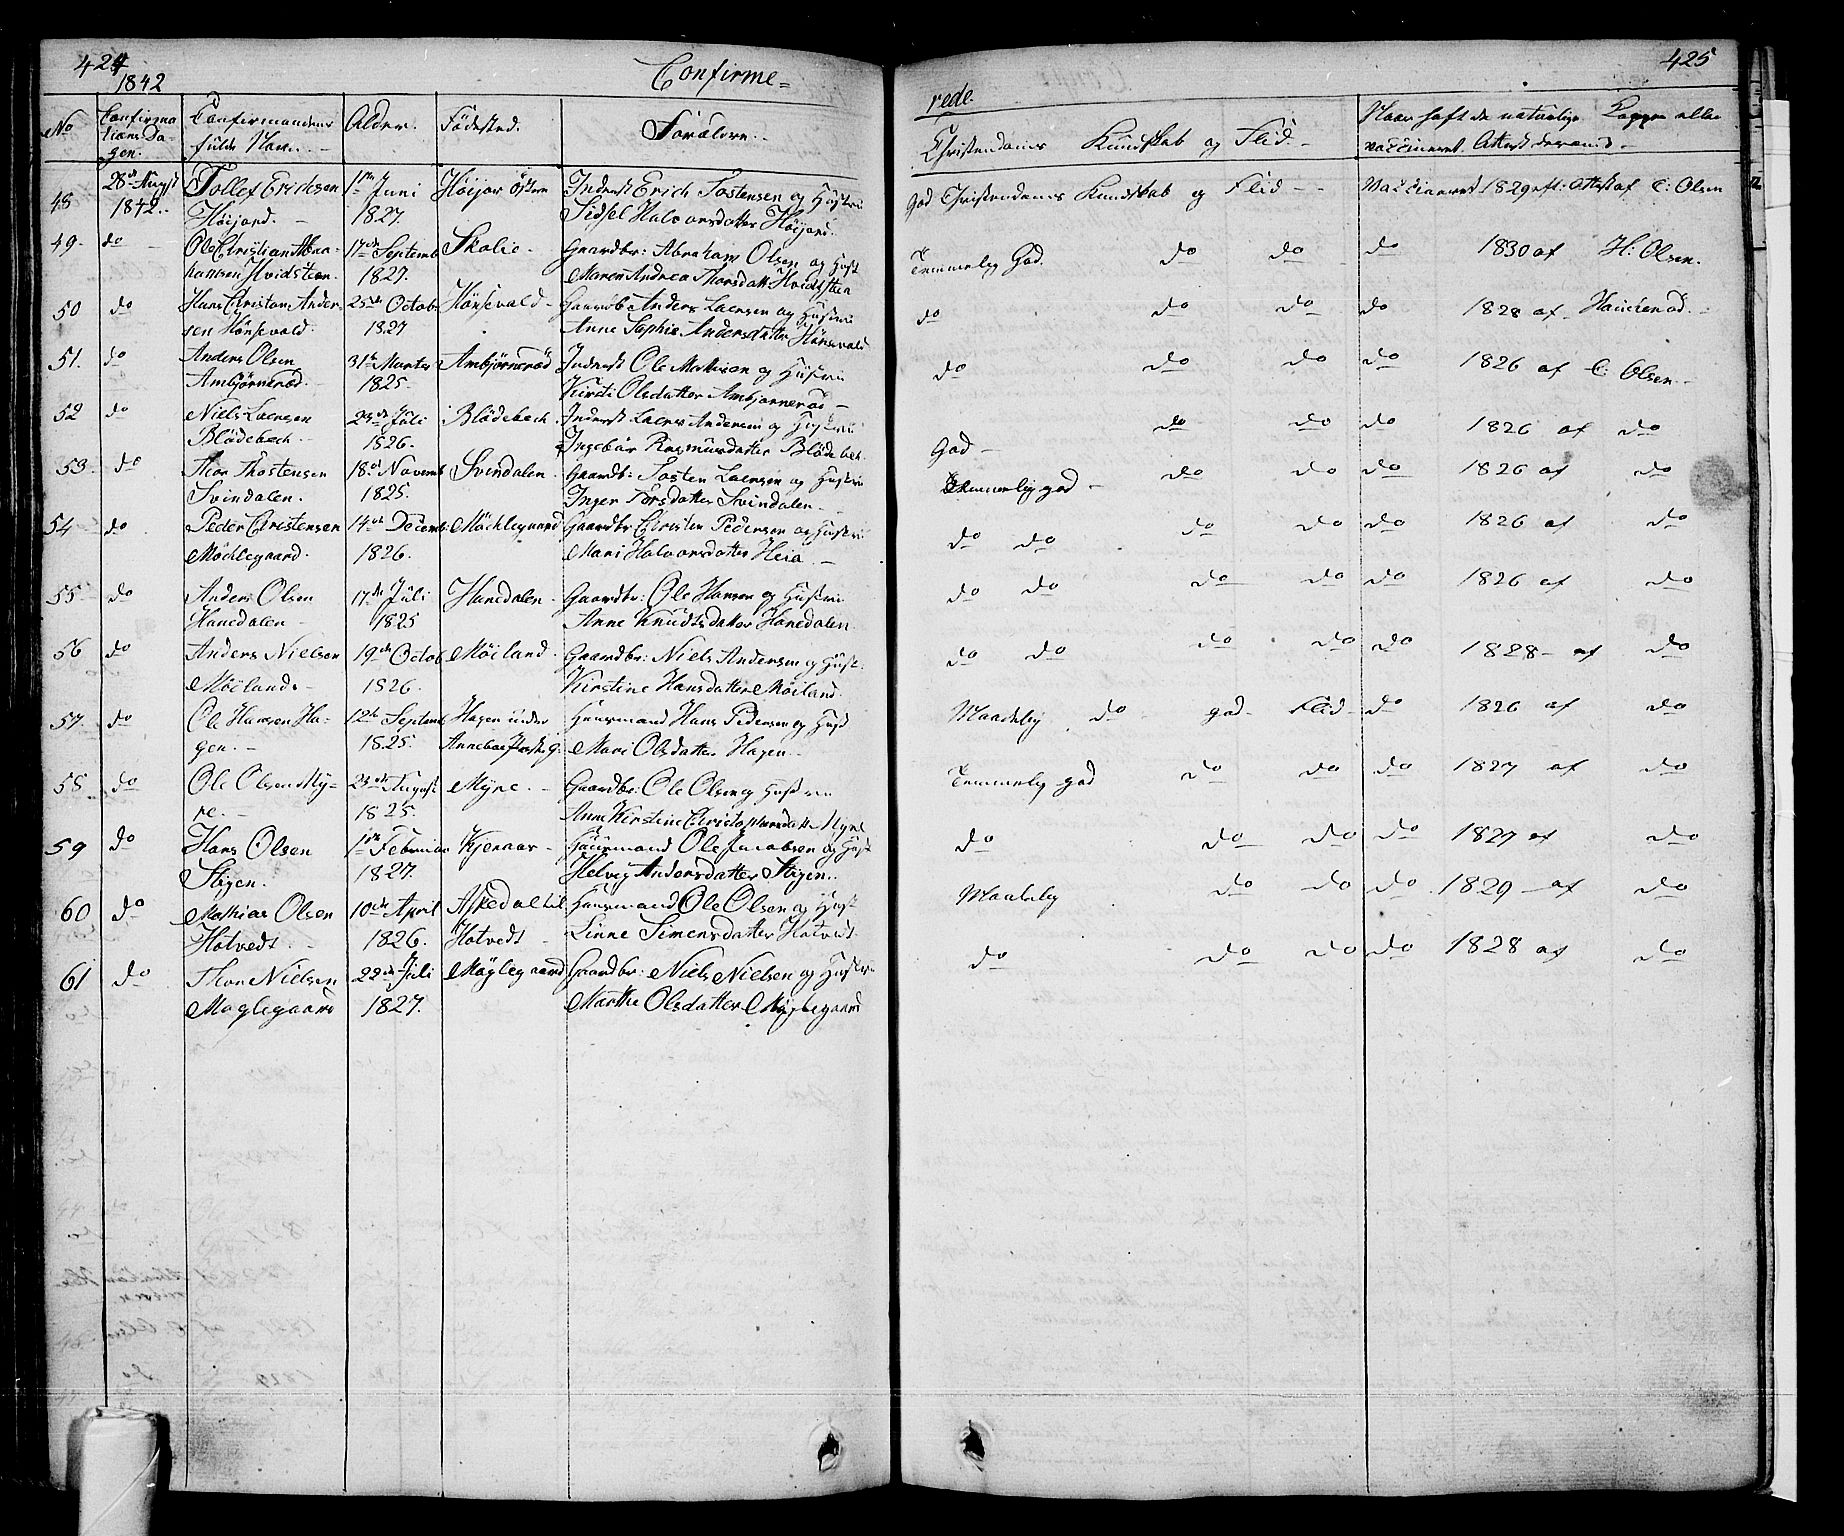 424
1842
Confirme=
No
Confirma
tions Da-
gen.
Confirmandens
fulde Navn.
Alder.
Fødested.
Forældre.
48 28de Augst 1842. Tollef Erichsen 1ste Juni Høijor Østern Inderst Erich Tostensen og Hustru
Høijord. 1827. Sidsel Halvorsdatter Høijord.
49. do Ole Christian Abra- 17de Septemb Skolie Gaardbr: Abraham Olsen og Hust
hamsen Hvidsteen. 1827. Maren Andrea Thorsdatt Hvidsteen
50 do Hans Christian Ander- 25de Octob Hønsevald Gaardb Anders Laersen og Hustru
sen Hønsevald. 1827 Anne Sophie Andersdatter Hønsevald
51. do Anders Olsen 31te Martes Ambjørnerød Inderst Ole Mathisen og Hustru
Ambjørnerød. 1825. Kirsti Olsdatter Ambjørnerød
52 do Niels Laersen Juli Blødebech Inderst Laers Andersen og Hustru
Blødebech 1826. Ingebor Rasmusdatter Blødebek.
53. do Thor Thostensen 18de Novemb Svindalen Gaardb: Tosten Laersen og Hustru
Svindalen. 1825. Inger Torsdatter Svindalen.
54 do. Peder Christensen 14de Decemb: Møchlegaard Gaardbr Christen Pedersen og Hustru
Møchlegaard. 1826. Mari Halvorsdatter Heia
55 do Anders Olsen 17de Juli Hanedalen Gaardbr: Ole Hansen og Hustru
Hanedalen 1825 Anne Knudtsdatter Hanedalen
56 do Anders Nielsen 19de Octob Møiland. Gaardbr: Niels Andersen og Hust.
Møilands 1826. Kirstine Hansdatter Møiland.
57. do Ole Hansen Ha- 12te Septemb Hagen under Huusmand Hans Pedersen og Hust
gen. 1825. Mari Olsdatter Hagen
58 do Ole Olsen My- 23de August Myre. Gaardbr: Ole Olsen og Hustru
re. 1825. Anne Kirstine Christophersdatt Myre
59 do Hans Olsen 1ste Februar Kjenaas Huusmand Ole Jacobsen og Hust
Stigen. 1827. Helvig Andersdatter Stigen.
60 do Mathias Olsen 10de April Huusmand Ole Olsen og Hust
Hotvedt. 1826. Hotvedt Linne Simensdatter Hotvedt
61 do Thor Nielsen 22de Juli Møglegaard Gaardbr: Niels Nielsen og Hustru
Møglegaard 1827. Marthe Olsdatter Møglegaard
425
rede.
Christendoms Kundskab og Flid.
Naar haft de naturlige Kopper eller
vaccineret. Attest derom
God Christendoms Kundskab og Flid Vaccineret 1829 eft: Attest af C: Olsen
Temmelig God. do do do 1830 af H: Olsen.
do do do do 1828 af
do do do do 1826 af C: Olsen
God do do do 1826 af do
Temmelig god do do do 1826 af do
do do do do do 1826 af do
do do do do do 1826 af do
do do do do do 1828 af do
Maadelig do god Flid do 1826 af do
Temmelig god do do do 1827 af do
do do do do 1827 af do
Maadelig do do do 1829 af do
do do do do 1828 af do